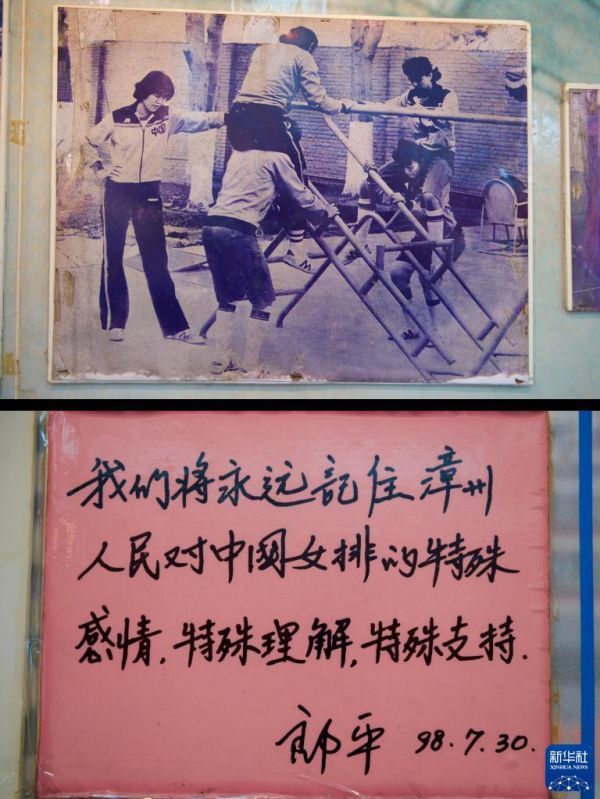 中国
我们将永远記住漳州
人民对中國女排的特殊
感情,特殊理解,特殊支持.
郎平 98.7.30.
新华社
XINHUA NEWS